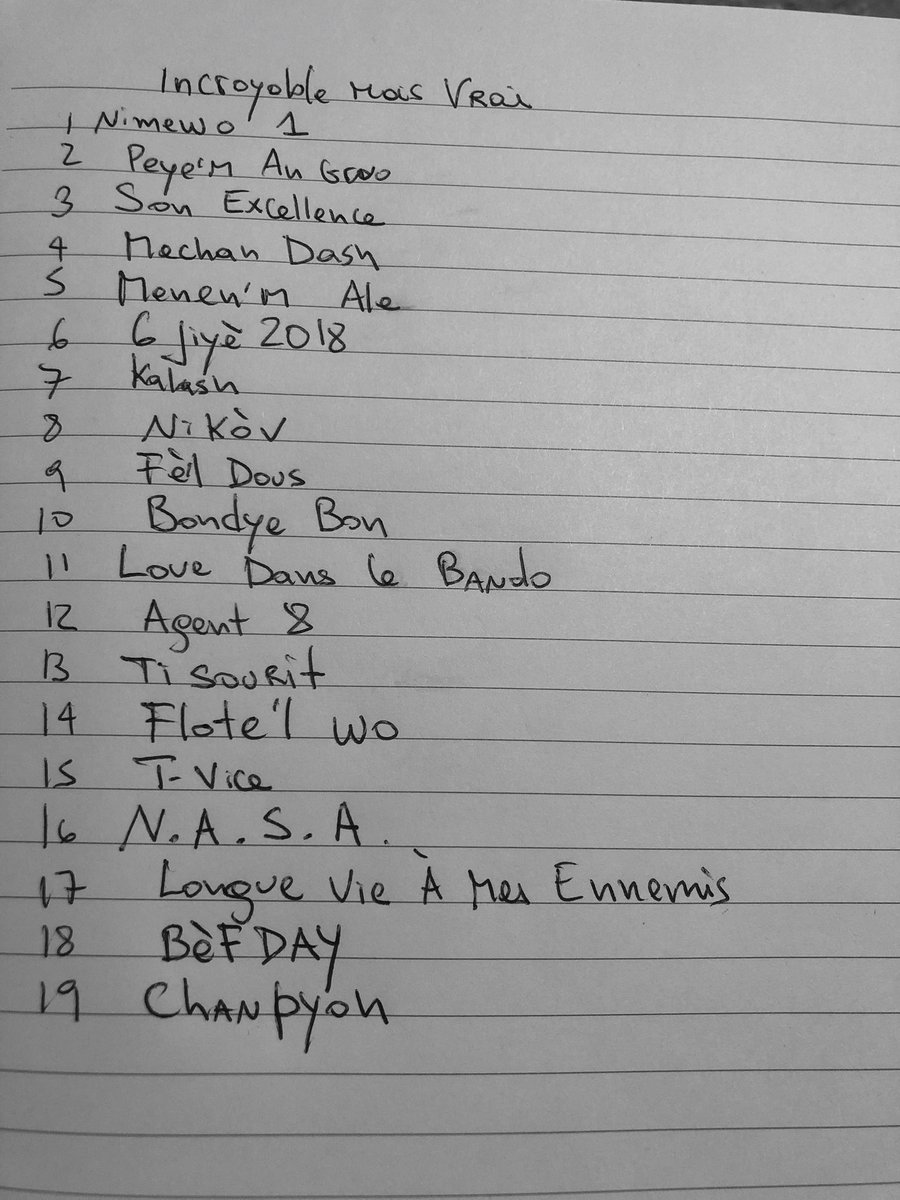 Incroyable Mais Vrai
1 Nimewo 1
2 Peye'm An Gwo
3 Son Excellence
4 Mechan Dash
5 Menen'm Ale
6 6 Jiyè 2018
7 Kalash
8 Nikòv
9 Fèl Dous
10 Bondye Bon
11 Love Dans le BANdo
12 Agent 8
13 Ti SOURit
14 Flote'l wo
15 T-Vice
16 N.A.S.A.
17 Longue Vie À Mes Ennemis
18 BèF DAY
19 ChANpyon